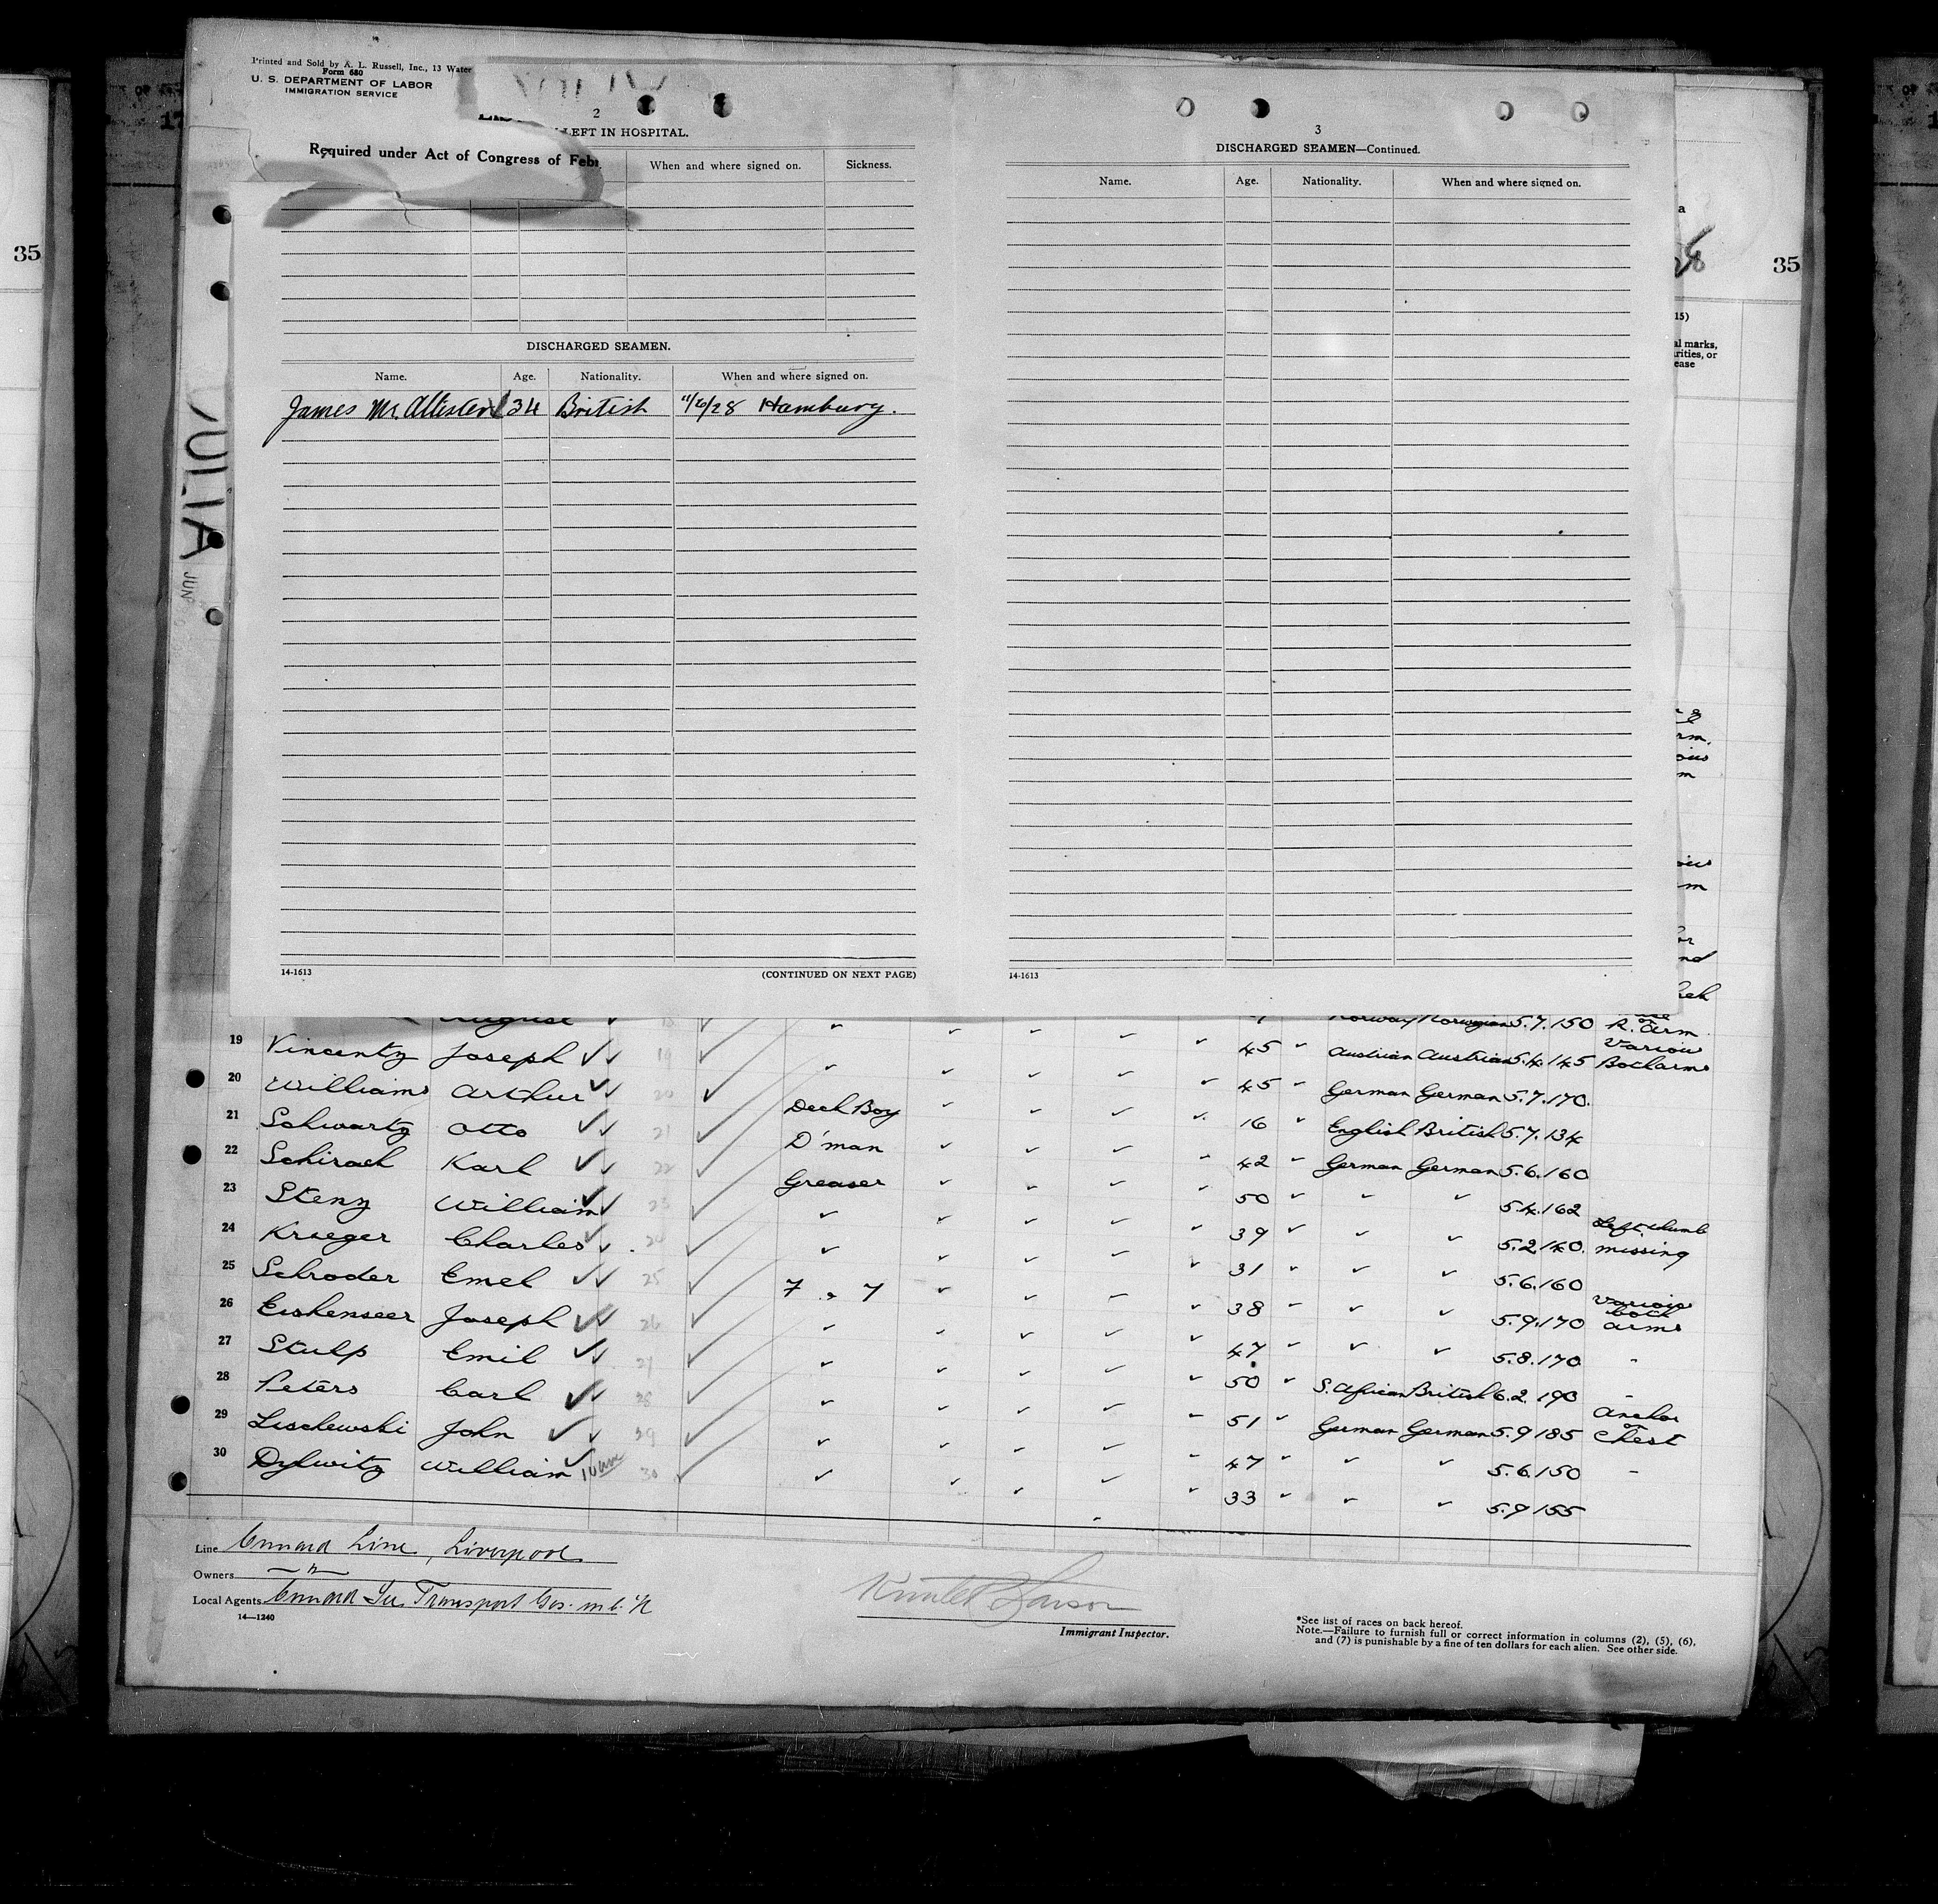 Printed and Sold by A. L. Russell, Inc., 13 Water
Form 680
U. S. DEPARTMENT OF LABOR
IMMIGRATION SERVICE
2
LEFT IN HOSPITAL.
Required under Act of Congress of Feb
When and where signed on. Sickness.
DISCHARGED SEAMEN.
Name. Age. Nationality. When and where signed on.
James McAllister 34 British 11/6/28 Hamburg.
14-1613 (CONTINUED ON NEXT PAGE)
3
DISCHARGED SEAMEN—Continued.
Name. Age. Nationality. When and where signed on.
14-1613
35
35
15)
al marks,
rities, or
ease
JULIA
JUN
August Norway Norwegian 5.7.150 R. arm
19 Vincenty Joseph 19 45 Austrian Austrian 5.4.145 Various Both arms
20 Williams Arthur 20 45 German German 5.7.170.
21 Schwartz Otto 21 Deck Boy 16 English British 5.7.134
22 Schirach Karl 22 D'man 42 German German 5.6.160
23 Stenz William 23 Greaser 50 " " 5.4.162
24 Krueger Charles 24 39 " " 5.2.140. Left thumb missing
25 Schroder Emel 25 31 " " 5.6.160
26 Eushenseer Joseph 26 38 " " 5.9.170 Various both arms
27 Stulp Emil 27 47 " " 5.8.170 -
28 Peters Carl 28 50 " S. African British 6.2.190 -
29 Lischewski John 29 51 " German German 5.9 185 Anchor on Chest
30 Dylwitz William 30 47 " " 5.6.150 -
33 " " 5.9 155
Line Cunard Line, Liverpool
Owners — " —
Local Agents Cunard See Transport Ges. m. b. H
14—1240
Immigrant Inspector.
*See list of races on back hereof.
Note.—Failure to furnish full or correct information in columns (2), (5), (6),
and (7) is punishable by a fine of ten dollars for each alien. See other side.